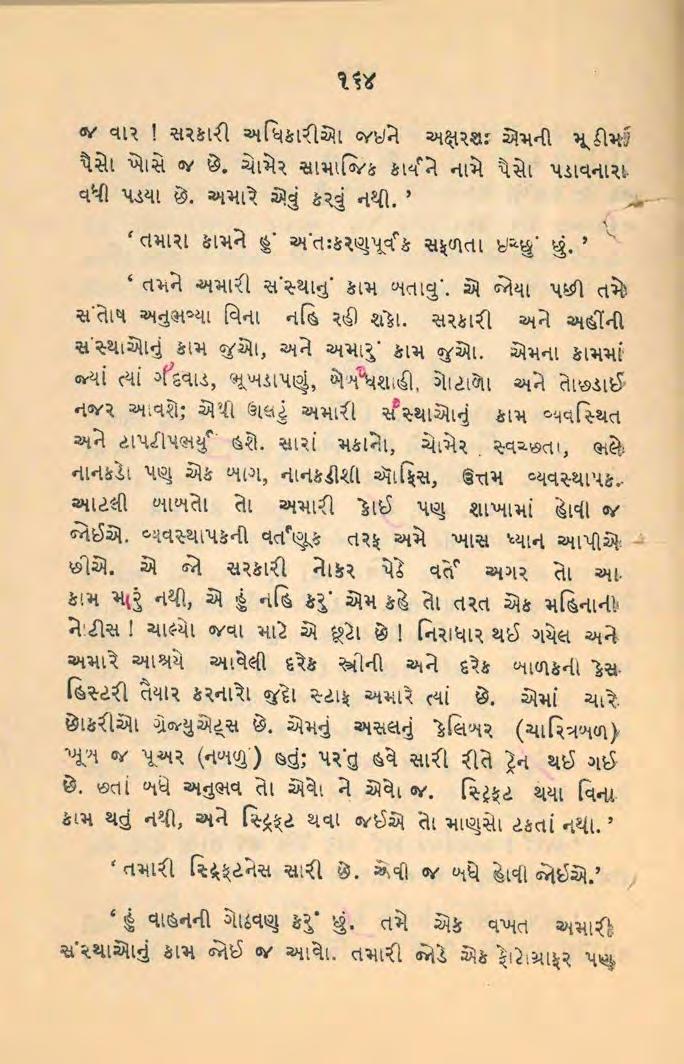 ૧૬૪
જ વાર ! સરકારી અધિકારીઓ જઇને અક્ષરશઃ એમની મૂડીમાં
પૈસો ખોસે જ છે. ચોમેર સામાજિક કાર્યને નામે પૈસો પડાવનારા
વધી પડયા છે. અમારે એવું કરવું નથી. ’
‘ તમારા કામને હું અંતઃકરણપૂર્વક સફળતા ઇચ્છું છું. ’
‘ તમને અમારી સંસ્થાનું કામ બતાવું. એ જોયા પછી તમે
સંતોષ અનુભવ્યા વિના નહિ રહી શકો. સરકારી અને અહીંની
સંસ્થાઓનું કામ જુઓ, અને અમારું કામ જુઓ. એમના કામમાં
જ્યાં ત્યાં ગંદવાડ, ભૂખડાપણું, બેબંધશાહી, ગોટાળો અને તોછડાઈ
નજર આવશે; એથી ઊલટું અમારી સંસ્થાઓનું કામ વ્યવસ્થિત
અને ટાપટીપભર્યું હશે. સારાં મકાનો, ચોમેર સ્વચ્છતા, ભલે
નાનકડો પણ એક બાગ, નાનકડીશી ઑફિસ, ઉત્તમ વ્યવસ્થાપક.
આટલી બાબતો તો અમારી કોઈ પણ શાખામાં હોવી જ
જોઈએ. વ્યવસ્થાપકની વર્તણૂક તરફ અમે ખાસ ધ્યાન આપીએ
છીએ. એ જો સરકારી નોકર પેઠે વર્તે અગર તો આ
કામ મારું નથી, એ હું નહિ કરું એમ કહે તો તરત એક મહિનાની
નોટીસ ! ચાલ્યો જવા માટે એ છૂટો છે ! નિરાધાર થઈ ગયેલ અને
અમારે આશ્રયે આવેલી દરેક સ્ત્રીની અને દરેક બાળકની કેસ
હિસ્ટરી તૈયાર કરનારો જુદો સ્ટાફ અમારે ત્યાં છે. એમાં ચારે
છોકરીઓ ગ્રેજ્યુએટ્સ છે. એમનું અસલનું કેલિબર (ચારિત્રબળ)
ખૂબ જ પૂઅર (નબળું) હતું; પરંતુ હવે સારી રીતે ટ્રેન થઈ ગઈ
છે. છતાં બધે અનુભવ તો એવો ને એવો જ. સ્ટ્રિક્ટ થયા વિના
કામ થતું નથી, અને સ્ટ્રિક્ટ થવા જઈએ તો માણસો ટકતાં નથી. ’
‘ તમારી સ્ટ્રિક્ટનેસ સારી છે. એવી જ બધે હોવી જોઈએ.’
‘ હું વાહનની ગોઠવણ કરું છું. તમે એક વખત અમારી
સંસ્થાઓનું કામ જોઈ જ આવો. તમારી જોડે એક ફોટોગ્રાફર પણ